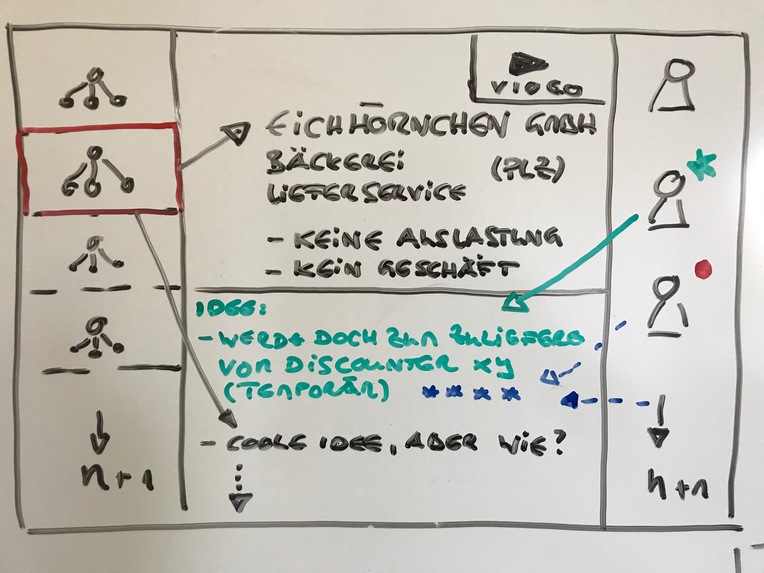 VIDEO
EICHHÖRNCHEN GMBH
BÄCKEREI (PLZ)
LIEFERSERVICE
- KEINE AUSLASTUNG
- KEIN GESCHÄFT
IDEE:
- WERDET DOCH ZUM ZULIEFERE
VON DISCOUNTER XY
(TEMPORÄR) * * * *
- COOLE IDEE, ABER WIE?
n+1
n+1